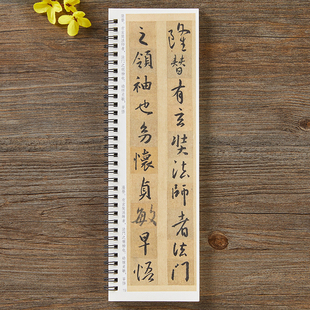 隆替有玄奘法師者法門
之領袖也幼懷貞敏早悟